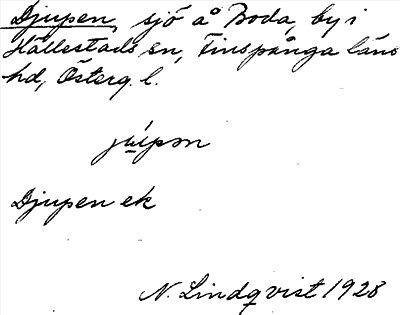 Djupen, sjö å Boda, by i
Hällestads sn, Finspånga läns
hd, Österg. l.
júpən
Djupen ek
N. Lindqvist 1928